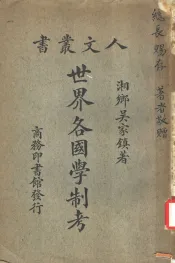 書叢文人
湘鄉吴家鎮著
世界各國學制考
商務印書館發行
總長賜存
著者敬贈